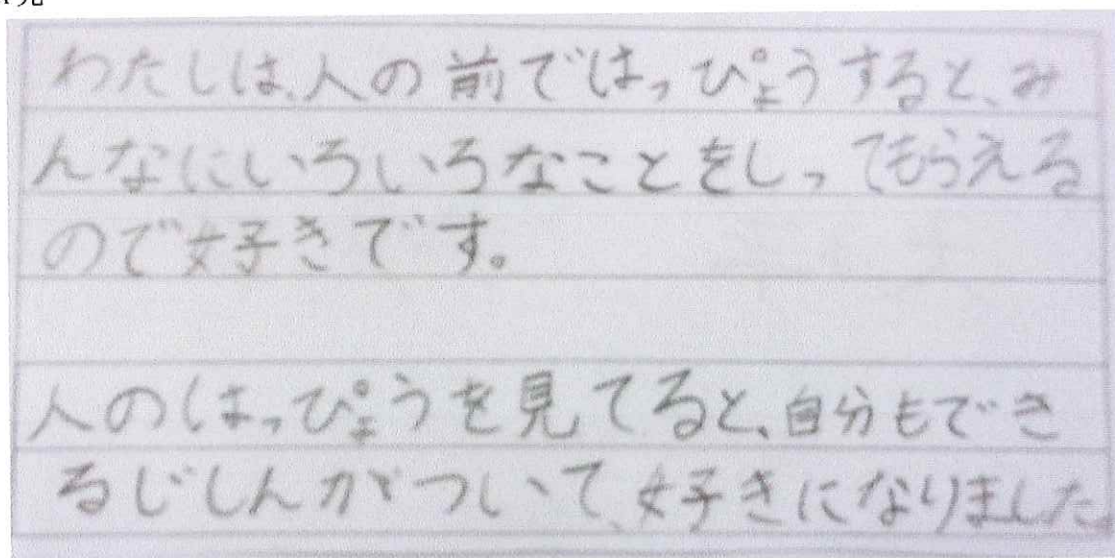 わたしは、人の前ではっぴょうすると、み
んなにいろいろなことをしってもらえる
ので好きです。
人のはっぴょうを見てると、自分もでき
るじしんがついて、好きになりました。